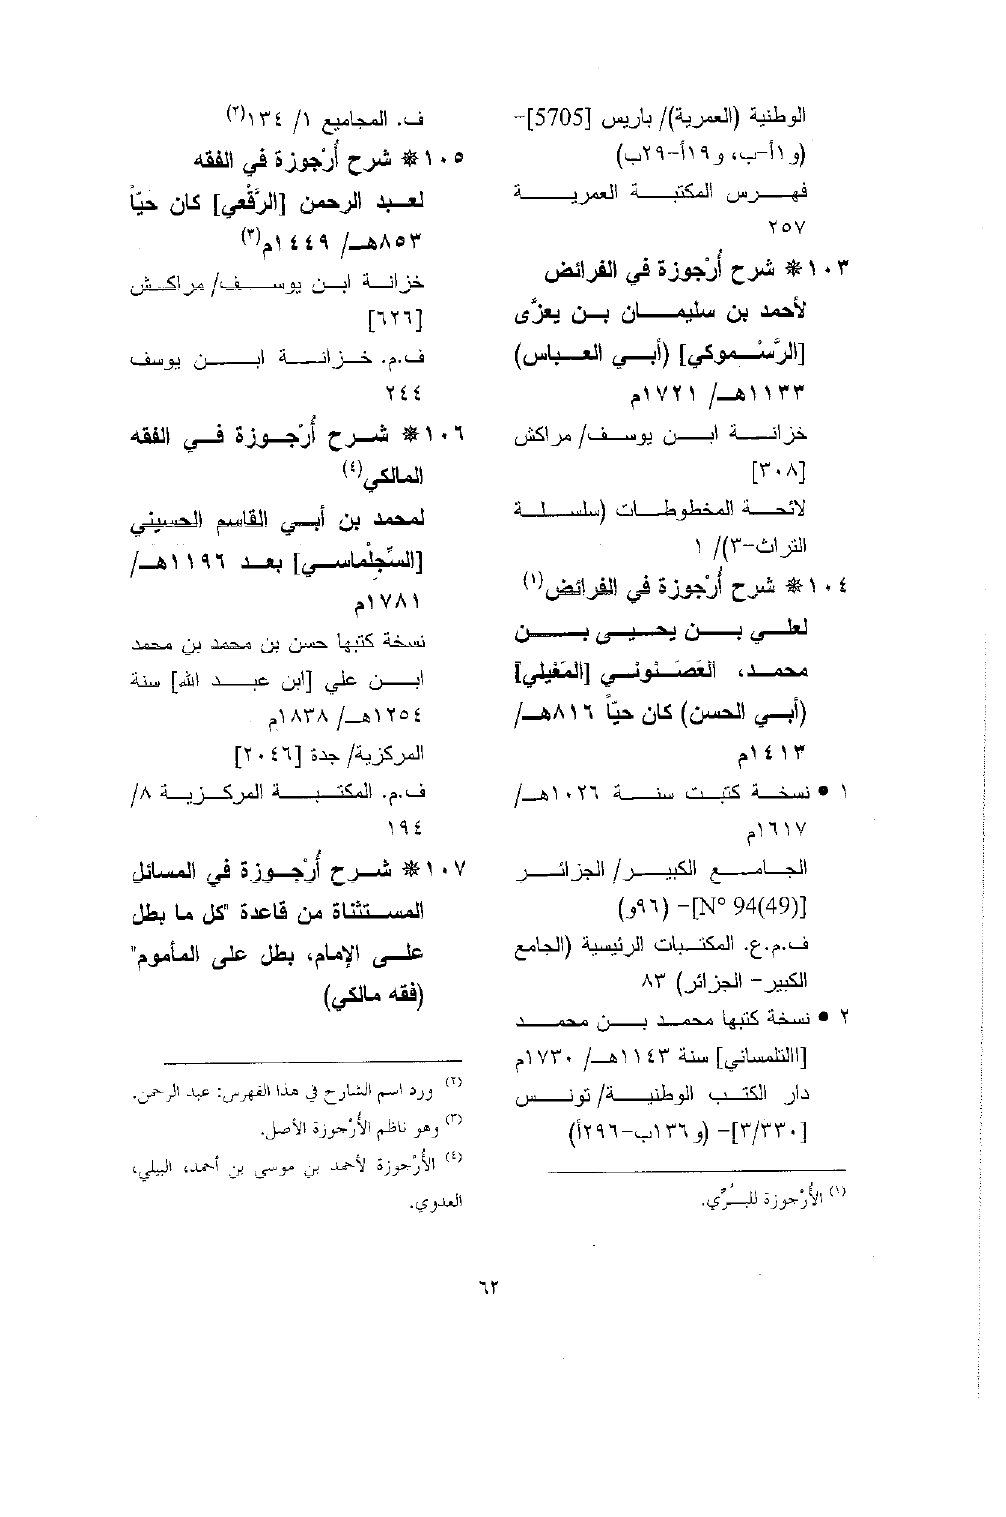 الوطنية (العمرية)/ باريس [5705]-
(و١أ-ب، و١٩أ-٢٩ب)
فهرس المكتبة العمرية
٢٥٧
١٠٣* شرح أُرْجوزة في الفرائض
لأحمد بن سليمان بن يعزَّى
[الرَّسْموكي] (أبي العباس)
١١٣٣هـ/ ١٧٢١م
خزانة ابن يوسف/ مراكش
[٣٠٨]
لائحة المخطوطات (سلسلة
التراث-٣)/ ١
١٠٤* شرح أُرْجوزة في الفرائض(١)
لعلي بن يحيى بن
محمد، العَصْنوني [المَغيلي]
(أبي الحسن) كان حيّاً ٨١٦هـ/
١٤١٣م
١ • نسخة كتبت سنة ١٠٢٦هـ/
١٦١٧م
الجامع الكبير/ الجزائر
[N° 94(49)]- (٩٦و)
ف.م.ع. المكتبات الرئيسية (الجامع
الكبير- الجزائر) ٨٣
٢ • نسخة كتبها محمد بن محمد
[االتلمساني] سنة ١١٤٣هـ/ ١٧٣٠م
دار الكتب الوطنية/ تونس
[٣/٣٣٠]- (و١٣٦ب-٢٩٦أ)
(١) الأُرْجوزة للبُرِّي.
ف. المجاميع ١/ ١٣٤(٢)
١٠٥* شرح أُرْجوزة في الفقه
لعبد الرحمن [الرَّقْعي] كان حيّاً
٨٥٣هـ/ ١٤٤٩م(٣)
خزانة ابن يوسف/ مراكش
[٦٢٦]
ف.م. خزانة ابن يوسف
٢٤٤
١٠٦* شرح أُرْجوزة في الفقه
المالكي(٤)
لمحمد بن أبي القاسم الحسيني
[السِّجِلْماسي] بعد ١١٩٦هـ/
١٧٨١م
نسخة كتبها حسن بن محمد بن محمد
ابن علي [ابن عبد الله] سنة
١٢٥٤هـ/ ١٨٣٨م
المركزية/ جدة [٢٠٤٦]
ف.م. المكتبة المركزية ٨/
١٩٤
١٠٧* شرح أُرْجوزة في المسائل
المستثناة من قاعدة "كل ما بطل
على الإمام، بطل على المأموم"
(فقه مالكي)
(٢) ورد اسم الشارح في هذا الفهرس: عبد الرحمن.
(٣) وهو ناظم الأُرْجوزة الأصل.
(٤) الأُرْجوزة لأحمد بن موسى بن أحمد، البيلي،
العدوي.
٦٢